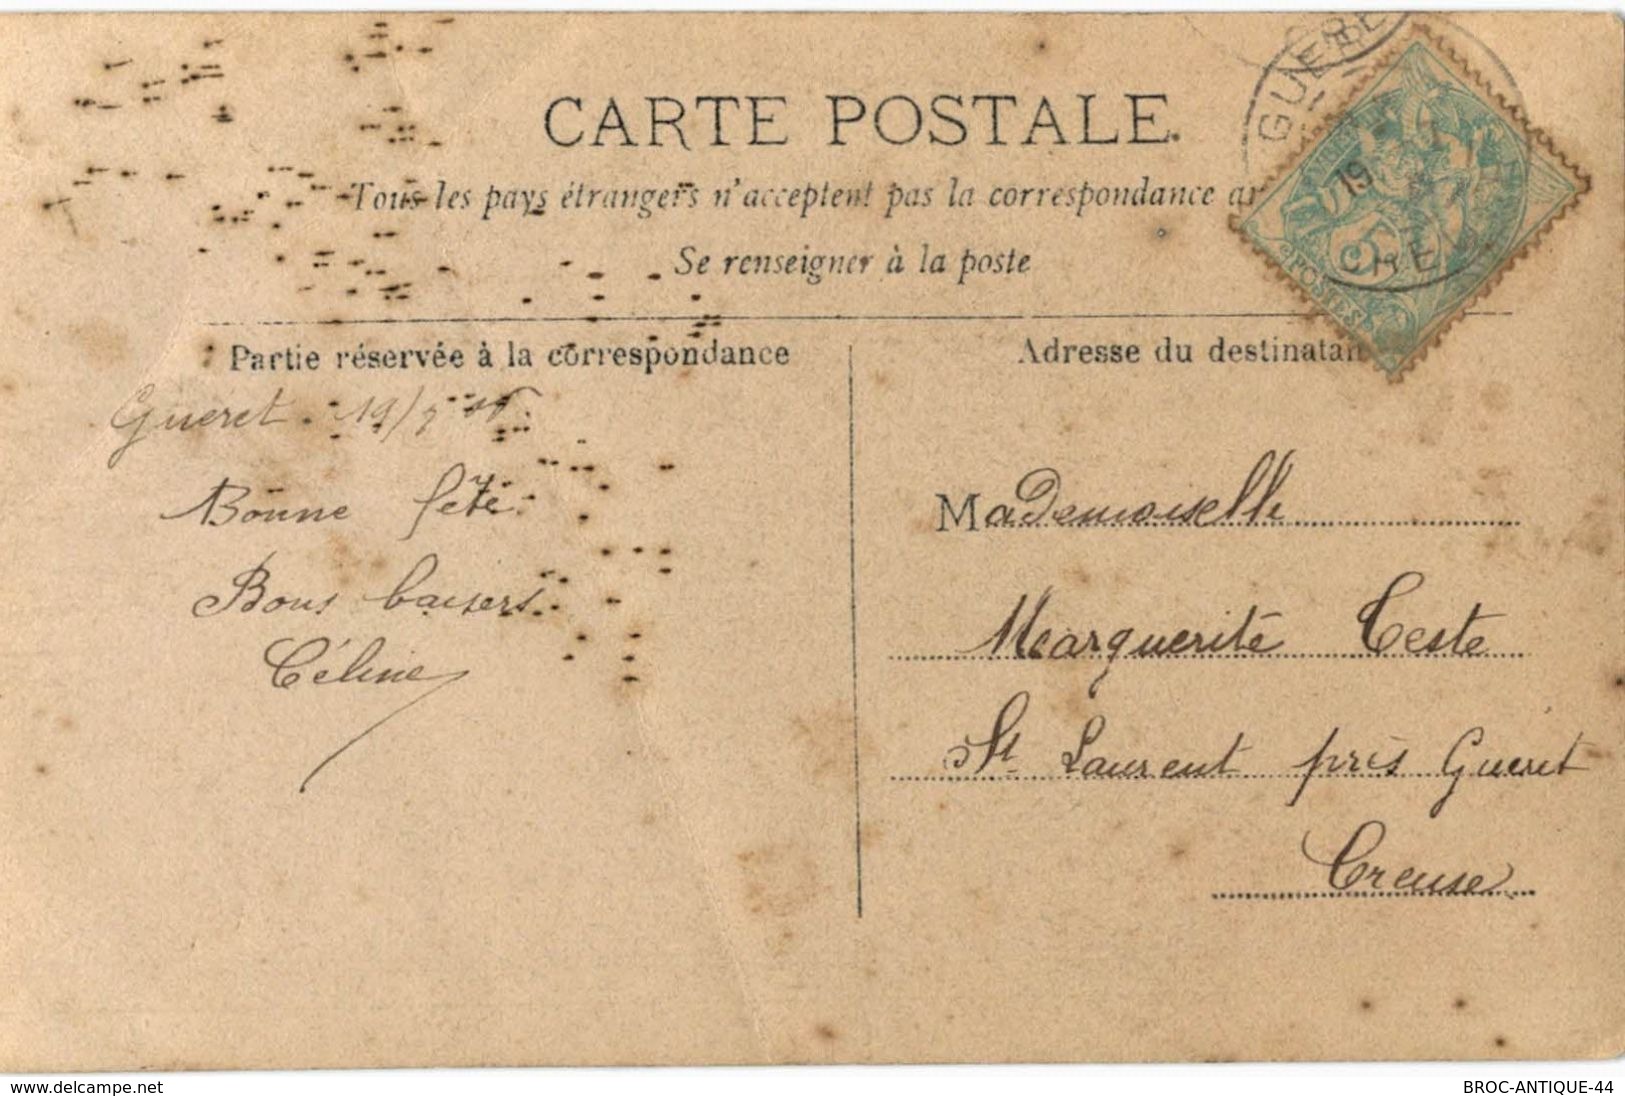 CARTE POSTALE.
Tous les pays étrangers n'acceptent pas la correspondance au
Se renseigner à la poste
GUERET
19
CRE
5
POSTES
Partie réservée à la correspondance
Gueret. 19/
Bonne fête
Bons baisers
Céline
Adresse du destinatai
Mademoiselle
Marguerite Teste
St Laurent près Gueret
Creuse
www.delcampe.net
BROC-ANTIQUE-44